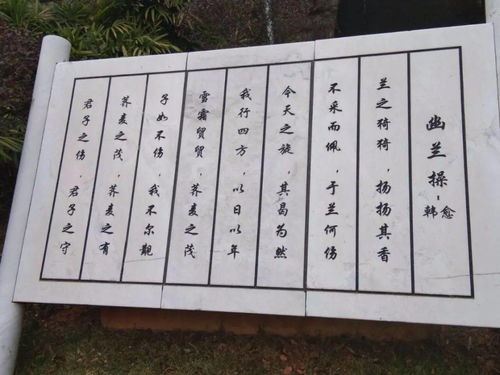 幽兰操-韩愈
兰之猗猗，扬扬其香
不采而佩，于兰何伤
今天之旋，其曷为然
我行四方，以日以年
雪霜貿貿，荠麦之茂
子如不伤，我不尔觏
荠麦之茂，荠麦之有
君子之伤 君子之守